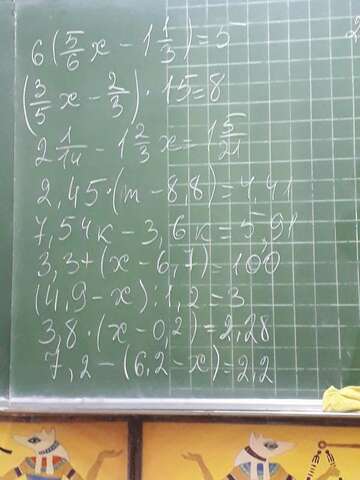 6(5/6 x - 1 1/3) = 5
(3/5 x - 2/3) · 15 = 8
2 1/14 - 1 2/3 x = 1 5/21
2,45 · (m - 8,8) = 4,41
7,54к - 3,6к = 5,91
3,3 + (x - 6,7) = 100
(4,9 - x) : 1,2 = 3
3,8 · (x - 0,2) = 2,28
7,2 - (6,2 - x) = 2,2